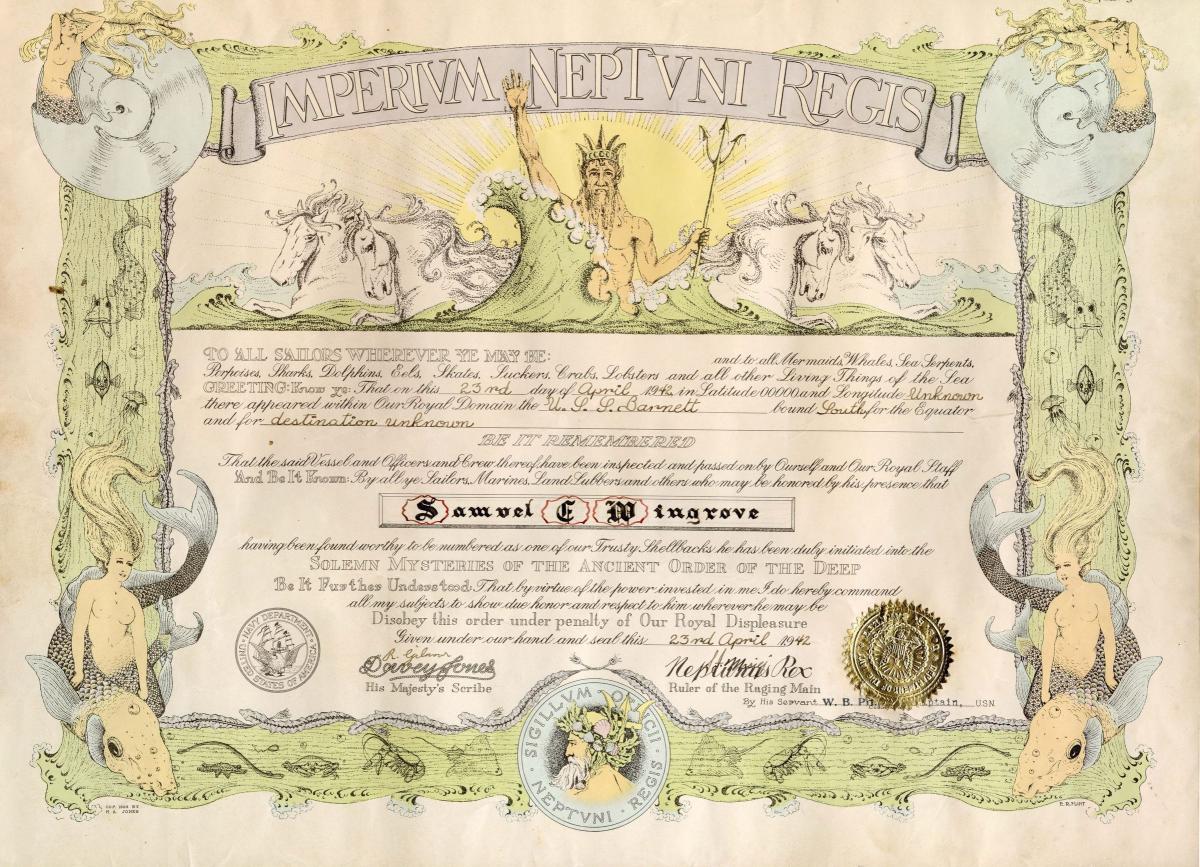 IMPERIVM NEPTVNI REGIS
TO ALL SAILORS WHEREVER YE MAY BE: and to all Mermaids, Whales, Sea Serpents,
Porpoises, Sharks, Dolphins, Eels, Skates, Suckers, Crabs, Lobsters and all other Living Things of the Sea
GREETING: Know ye: That on this 23rd day of April 1942 in Latitude 00000 and Longitude Unknown
there appeared within Our Royal Domain the U. S. S. Barnett bound South for the Equator
and for destination unknown
BE IT REMEMBERED
That the said Vessel and Officers and Crew thereof, have been inspected and passed on by Ourself and Our Royal Staff
And Be It Known: By all ye Sailors, Marines, Land Lubbers and others who may be honored by his presence that
Samuel E Wingrove
having been found worthy to be numbered as one of our Trusty Shellbacks he has been duly initiated into the
SOLEMN MYSTERIES OF THE ANCIENT ORDER OF THE DEEP
Be It Further Understood: That by virtue of the power invested in me I do hereby command
all my subjects to show due honor and respect to him wherever he may be
Disobey this order under penalty of Our Royal Displeasure
Given under our hand and seal this 23rd April 1942
NAVY DEPARTMENT
UNITED STATES OF AMERICA
Davey Jones
His Majesty's Scribe
Neptunus Rex
Ruler of the Raging Main
By His Servant W. B. Captain, USN
SIGILLVM OFFICII
NEPTVNI REGIS
COP. BY
H. A. JONES
E. R. FLINT